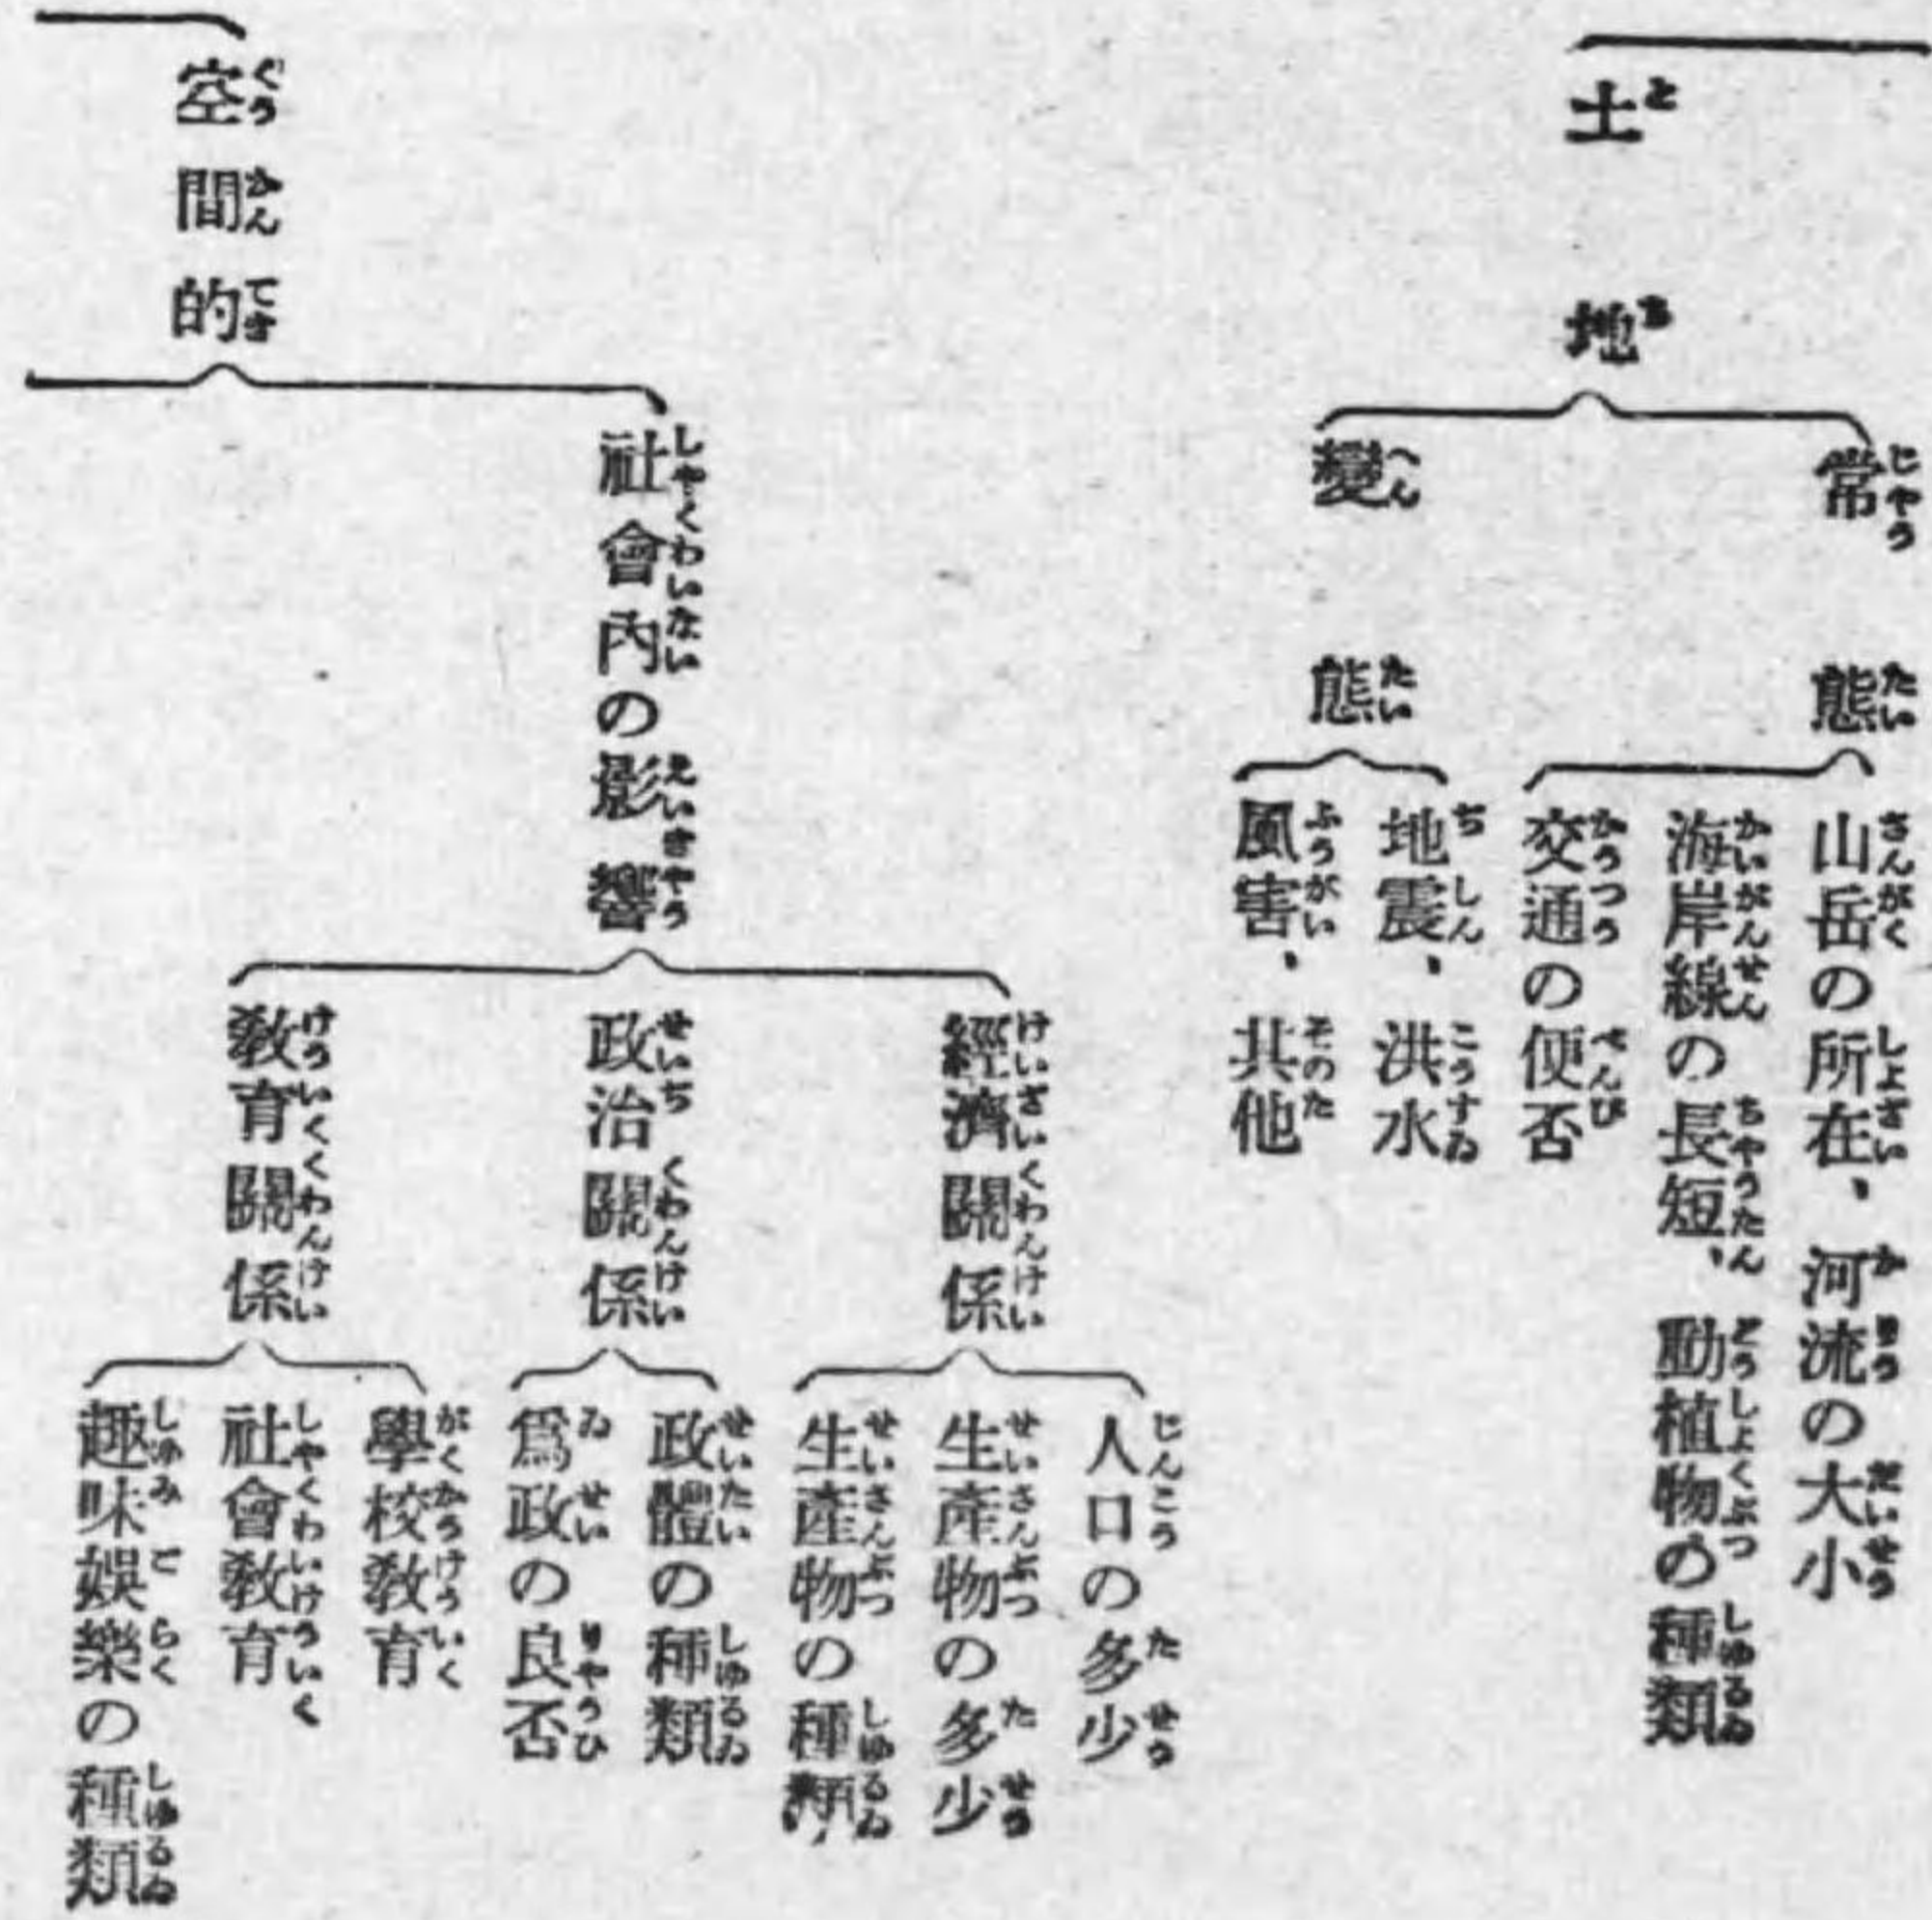 土地
常態
山岳の所在、河流の大小
海岸線の長短、動植物の種類
交通の便否
變態
地震、洪水
風害、其他
空間的
社會内の影響
經濟關係
人口の多少
生産物の多少
生産物の種類
政治關係
政體の種類
爲政の良否
教育關係
學校教育
社會教育
趣味娯樂の種類